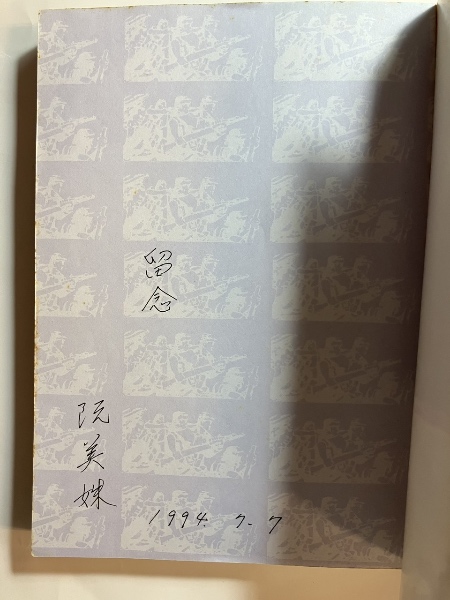 留念
阮美姝
1994. 7-7